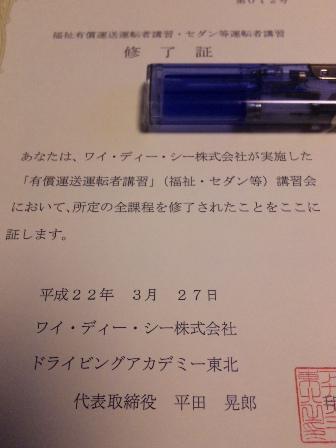 第０１２号
福祉有償運送運転者講習・セダン等運転者講習
修 了 証
あなたは、ワイ・ディー・シー株式会社が実施した
「有償運送運転者講習」（福祉・セダン等）講習会
において、所定の全課程を修了されたことをここに
証します。
平成２２年　３月　２７日
ワイ・ディー・シー株式会社
ドライビングアカデミー東北
代表取締役　平田　晃郎